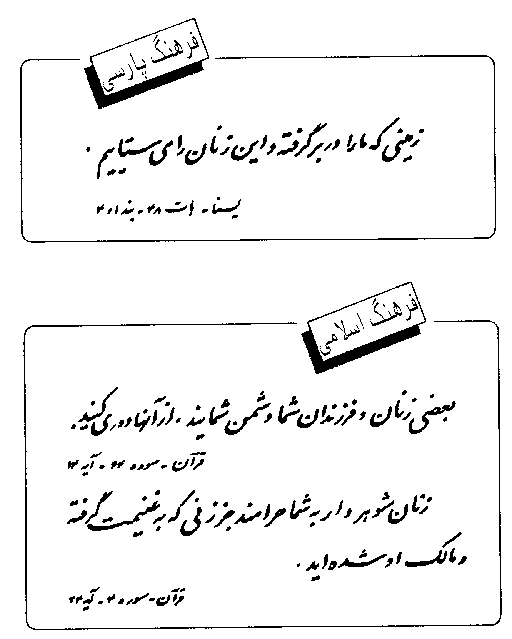 فرهنگ پارسی
زمینی که ما را در بر گرفته و این زنان را می ستاییم.
یسنا - هات ۳۸ - بند ۱ و ۲
فرهنگ اسلامی
بعضی زنان و فرزندان شما دشمن شمایند. از آنها دوری کنید.
قرآن - سوره ۶۴ - آیه ۱۴
زنان شوهر دار به شما حرامند جز زنی که به غنیمت گرفته
و مالک او شده اید.
قرآن - سوره ۴ - آیه ۲۴